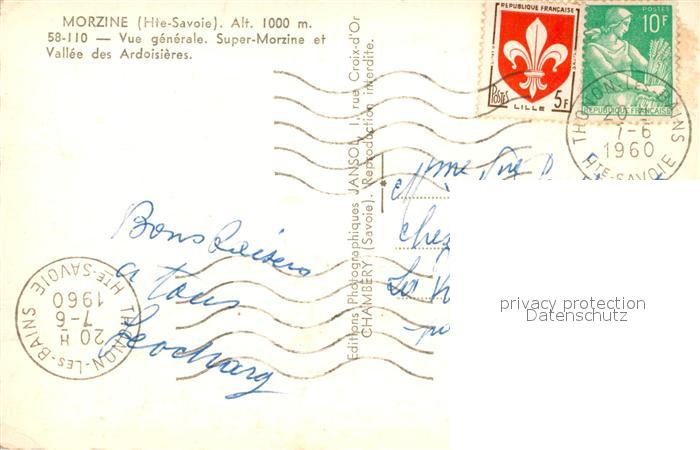 MORZINE (Hte-Savoie). Alt. 1000 m.
58-110 — Vue générale. Super-Morzine et
Vallée des Ardoisières.
Editions Photographiques JANSOL, 1, rue Croix-d'Or
CHAMBÉRY (Savoie). Reproduction interdite.
REPUBLIQUE FRANÇAISE
POSTES
5F
LILLE
POSTES
10F
REPUBLIQUE FRANÇAISE
THONON-LES-BAINS
20
7-6
1960
HTE-SAVOIE
Bons Baisers
a tous
Mme
chez
La
THONON-LES-BAINS
20 H
7-6
1960
HTE-SAVOIE
privacy protection
Datenschutz